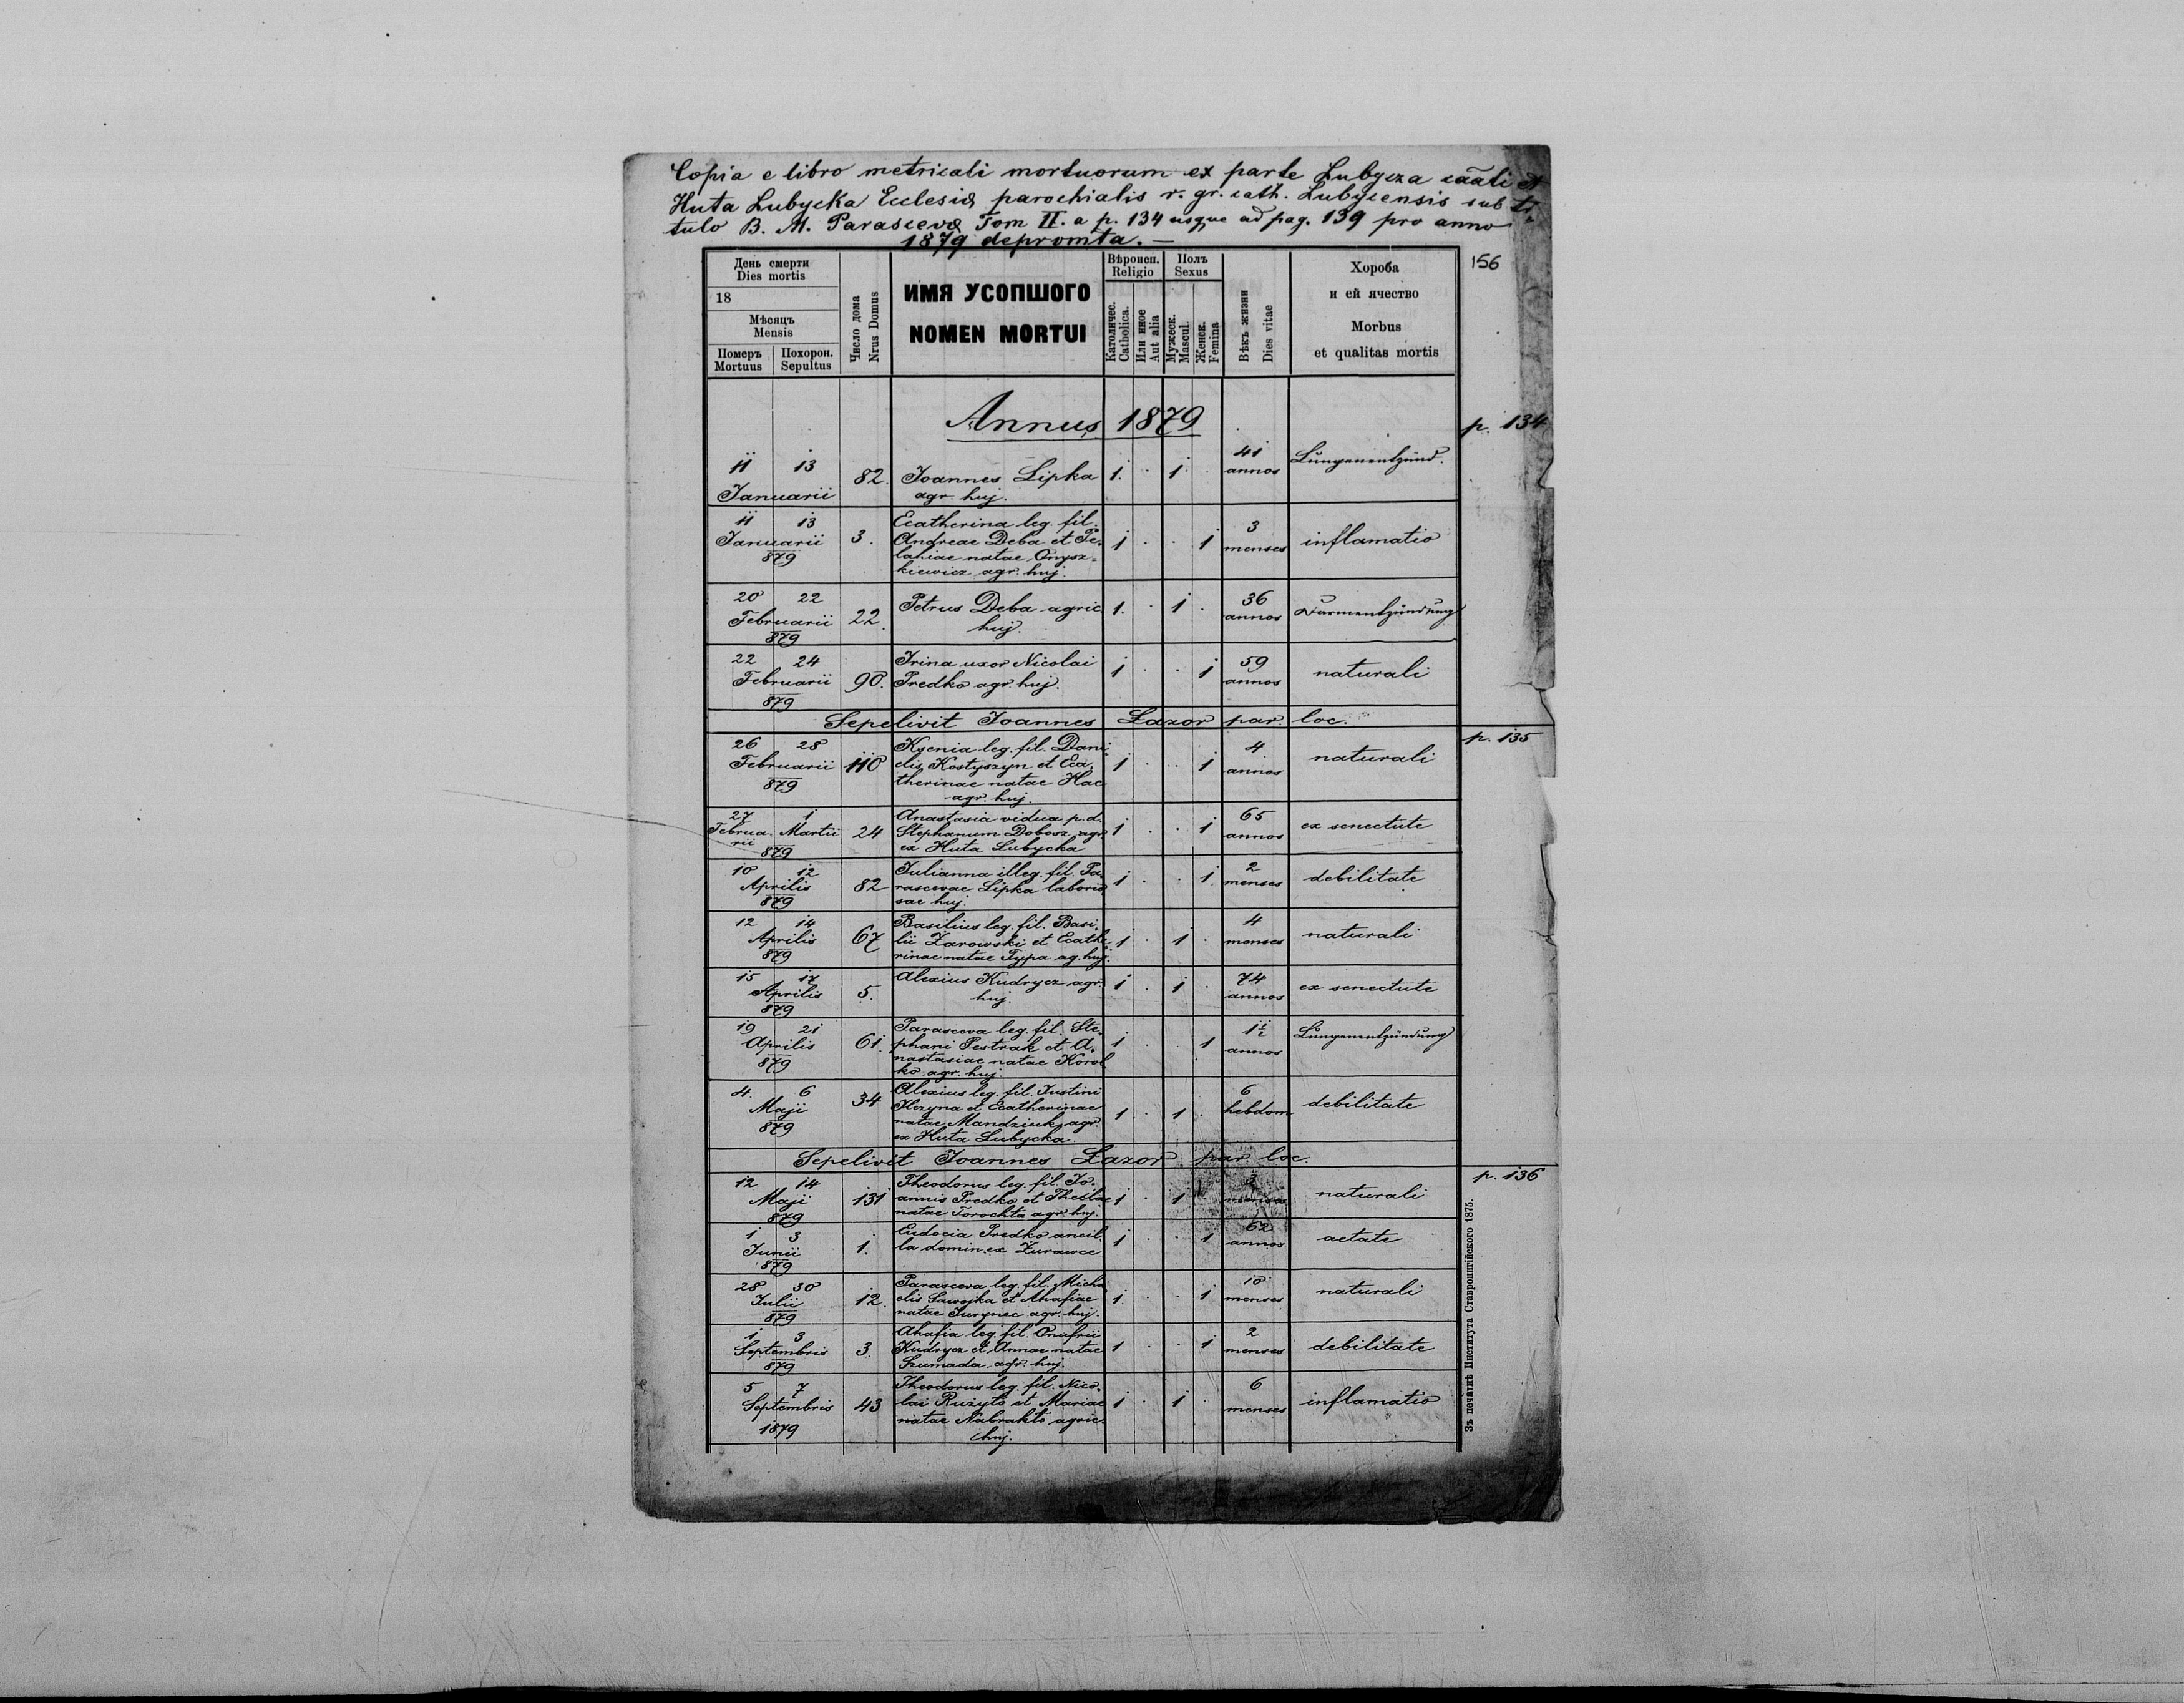 Copia e libro metricali mortuorum ex parte Lubycza caali et
Huta Lubycka Ecclesiæ parochialis r. gr. cath. Lubycensis sub ti-
tulo B. M. Parascevæ Tom II. a p. 134 usque ad pag. 139 pro anno
1879 depromta. —
156
День смерти
Dies mortis
18
Мѣсяцъ
Mensis
Померъ
Mortuus
Похорон.
Sepultus
Число дома
Nrus Domus
ИМЯ УСОПШОГО
NOMEN MORTUI
Вѣроисп.
Religio
Католичес.
Catholica.
Или иное
Aut alia
Полъ
Sexus
Мужеск.
Mascul.
Женск.
Femina
Вѣкъ жизни
Dies vitae
Хороба
и ей ячество
Morbus
et qualitas mortis
Annus 1879
p. 134
11 13
Januarii
82.
Joannes Lipka
agr. huj.
1. · 1 ·
41
annos
Lungenentzünd.
11 13
Januarii
879
3.
Ecatherina leg. fil.
Andreae Deba et Pe-
lahiae natae Onysz-
kiewicz agr. huj.
1 · · 1
3
menses
inflamatio
20 22
Februarii
879
22.
Petrus Deba agric
huj.
1. · 1 ·
36
annos
Darmentzündung
22 24
Februarii
879
90.
Irina uxor Nicolai
Predko agr. huj.
1 · · 1
59
annos
naturali
Sepelivit Joannes Lazor par. loc.
p. 135
26 28
Februarii
879
110
Ksenia leg. fil. Dani-
elis Kostyszyn et Eca-
therinae natae Hac
agr. huj.
1 · · 1
4
annos
naturali
27 1
Februa- Martii
rii
879
24
Anastasia vidua p. d.
Stephanum Dobosz agr.
ex Huta Lubycka
1 · · 1
65
annos
ex senectute
10 12
Aprilis
879
82
Julianna illeg. fil. Pa-
rascevae Lipka laborio
sae huj.
1 · · 1
2
menses
debilitate
12 14
Aprilis
879
67
Basilius leg. fil. Basi-
lii Zarowski et Ecathe-
rinae natae Typa ag. huj.
1 · 1 ·
4
menses
naturali
15 17
Aprilis
879
5.
Alexius Kudrycz agr.
huj.
1 · 1 ·
74
annos
ex senectute
19 21
Aprilis
879
61.
Parasceva leg. fil. Ste-
phani Pestrak et A-
nastasiae natae Korol
ko agr. huj.
1 · · 1
1½
annos
Lungenentzündung
4. 6
Maji
879
34
Alexius leg. fil. Justini
et Ecatherinae
natae Mandziuk agr.
ex Huta Lubycka.
1 · 1 ·
6
hebdom
debilitate
Sepelivit Joannes Lazor par. loc.
p. 136
12 14
Maji
879
131
Theodorus leg. fil. Jo-
annis Predko et Theclae
natae Torochta agr. huj.
1 · 1
3
menses
naturali
1 3
Junii
879
1.
Eudocia Predko ancil
la domin. ex Zurawce
1 · · 1
62
annos
aetate
28 30
Julii
879
12.
Parasceva leg. fil. Micha
elis Sawojka et Ahafiae
natae Jurynec agr. huj.
1. · · 1
10
menses
naturali
1 3
Septembris
879
3.
Ahafia leg. fil. Onufrii
Kudrycz et Annae natae
Szumada agr. huj.
1 · · 1
2
menses
debilitate
5 7
Septembris
1879
43
Theodorus leg. fil. Nico-
lai Ruzyto et Mariae
natae Nabrahto agric.
huj.
1 · 1 ·
6
menses
inflamatio
Зъ печатнѣ Института Ставропигійского 1875.